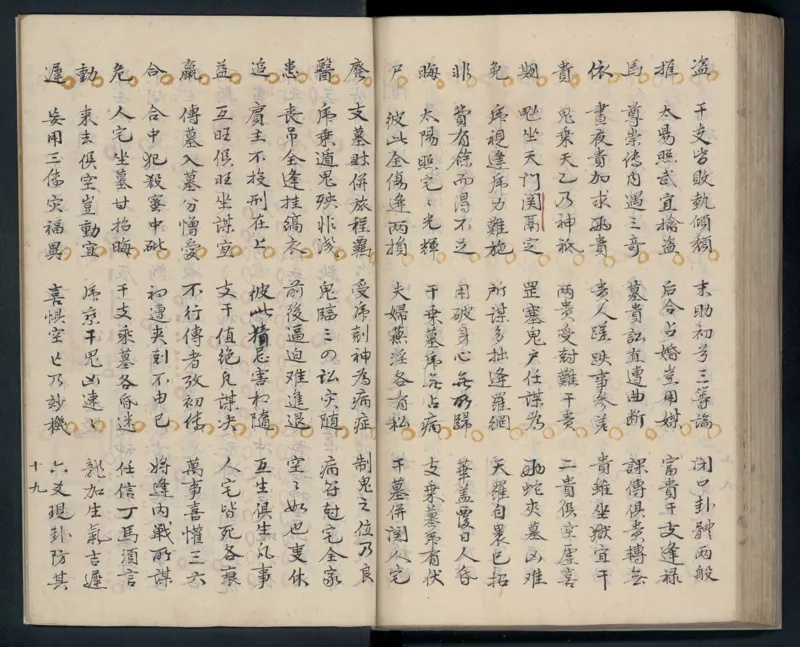 盗 干支皆敗執傾頹 末助初兮三等論 閉口卦體兩般
推 太陽照武宜擒盗 后合占婚豈用媒 富貴干支逢祿
馬 尊崇傳内遇三奇 墓貴訟直遭曲断 課傳俱貴轉無
依 晝夜貴加求兩貴 貴人蹉跌事参差 貴雖坐獄宜干
貴 鬼乗天乙乃神祇 兩貴受尅難干貴 二貴俱空虚喜
期 魁坐天門関鬲定 罡塞鬼户任謀為 兩蛇夾墓凶难
免 席視逢席力難施 所謀多拙逢羅網 天羅自裹已招
非 費有餘而得不足 用破身心無所歸 華盖覆日人昏
晦 太陽照宅々光輝 干乗墓席無占病 支乗墓席有伏
尸 彼此全傷逢两損 夫婦蕪淫各有私 干墓併関人宅
廢 支墓財併旅程羈 受席尅神為病症 制鬼之位乃良
醫 席乗遁鬼殃非浅 鬼臨三四訟灾随 病符尅宅全家
患 丧吊全逢挂縞衣 前後逼迫难進退 空々如也叓休
追 賓主不投刑在上 彼此猜忌害相随 互生俱生凡事
益 互旺俱旺坐謀宜 干支值絶凡謀决 人宅皆死各衰
羸 傳墓入墓分憎愛 不行傳者攷初時 萬事喜懽三六
合 合中犯殺蜜中砒 初遭夾尅不由己 将逢内戰所謀
危 人宅坐墓甘招晦 干支乗墓各昏迷 任信丁馬須言
動 来去俱空豈動宜 席乗干鬼凶速々 龍加生氣吉遲
遲 妄用三傳灾福異 喜惧空亡乃妙機 六爻現卦防其
十九